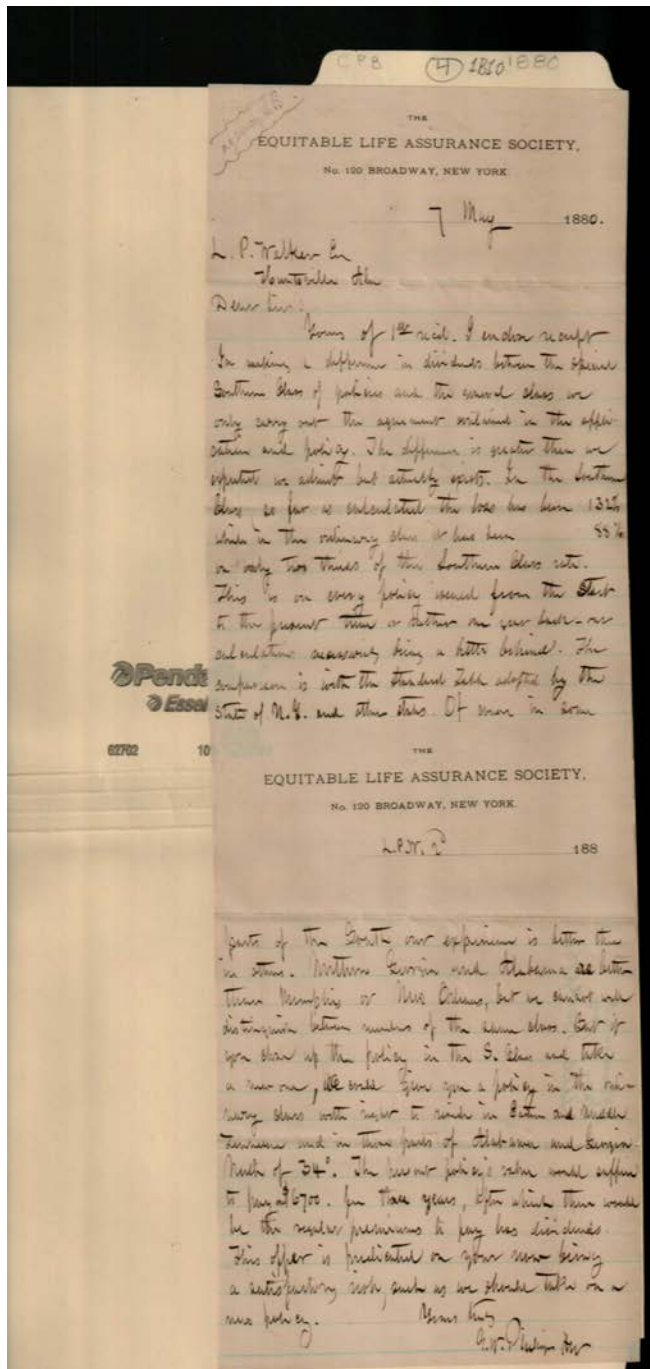 CPB (4) 1810 1880
THE
EQUITABLE LIFE ASSURANCE SOCIETY,
No. 120 BROADWAY, NEW YORK.
7 May 1880.
L. P. Walker Esq
Huntsville Ala
Dear Sir:
Yours of 1st recd. I enclose receipt
In making a difference in dividends between the special
Southern Class of policies and the general class we
only carry out the agreement contained in the appli-
cation and policy. The difference is greater than we
expected we admit but actually exists. In the Southern
Class so far as calculated the loss has been 132%
while in the ordinary class it has been 88%
or only two thirds of the Southern Class rate.
This is on every policy issued from the Start
to the present time or rather one year back - our
calculations necessarily being a little behind. The
comparison is with the Standard Table adopted by the
State of N.Y. and other states. Of course in some
Penda
Essel
62702 10
THE
EQUITABLE LIFE ASSURANCE SOCIETY,
No. 120 BROADWAY, NEW YORK.
L.P.W. 2 188
parts of the South our experience is better than
in others. Northern Georgia and Alabama are better
than Memphis or New Orleans, but we cannot well
distinguish between members of the same class. But if
you give up the policy in the S. Class and take
a new one, we could give you a policy in the ordi-
nary class with right to reside in Eastern and Middle
Tennessee and in those parts of Alabama and Georgia
North of 34°. The present policy's value would suffice
to pay $6700. for three years, after which there would
be the regular premiums to pay less dividends.
This offer is predicated on your now being
a satisfactory risk, such as we should take on a
new policy.
Yours truly
G.W. Phillips